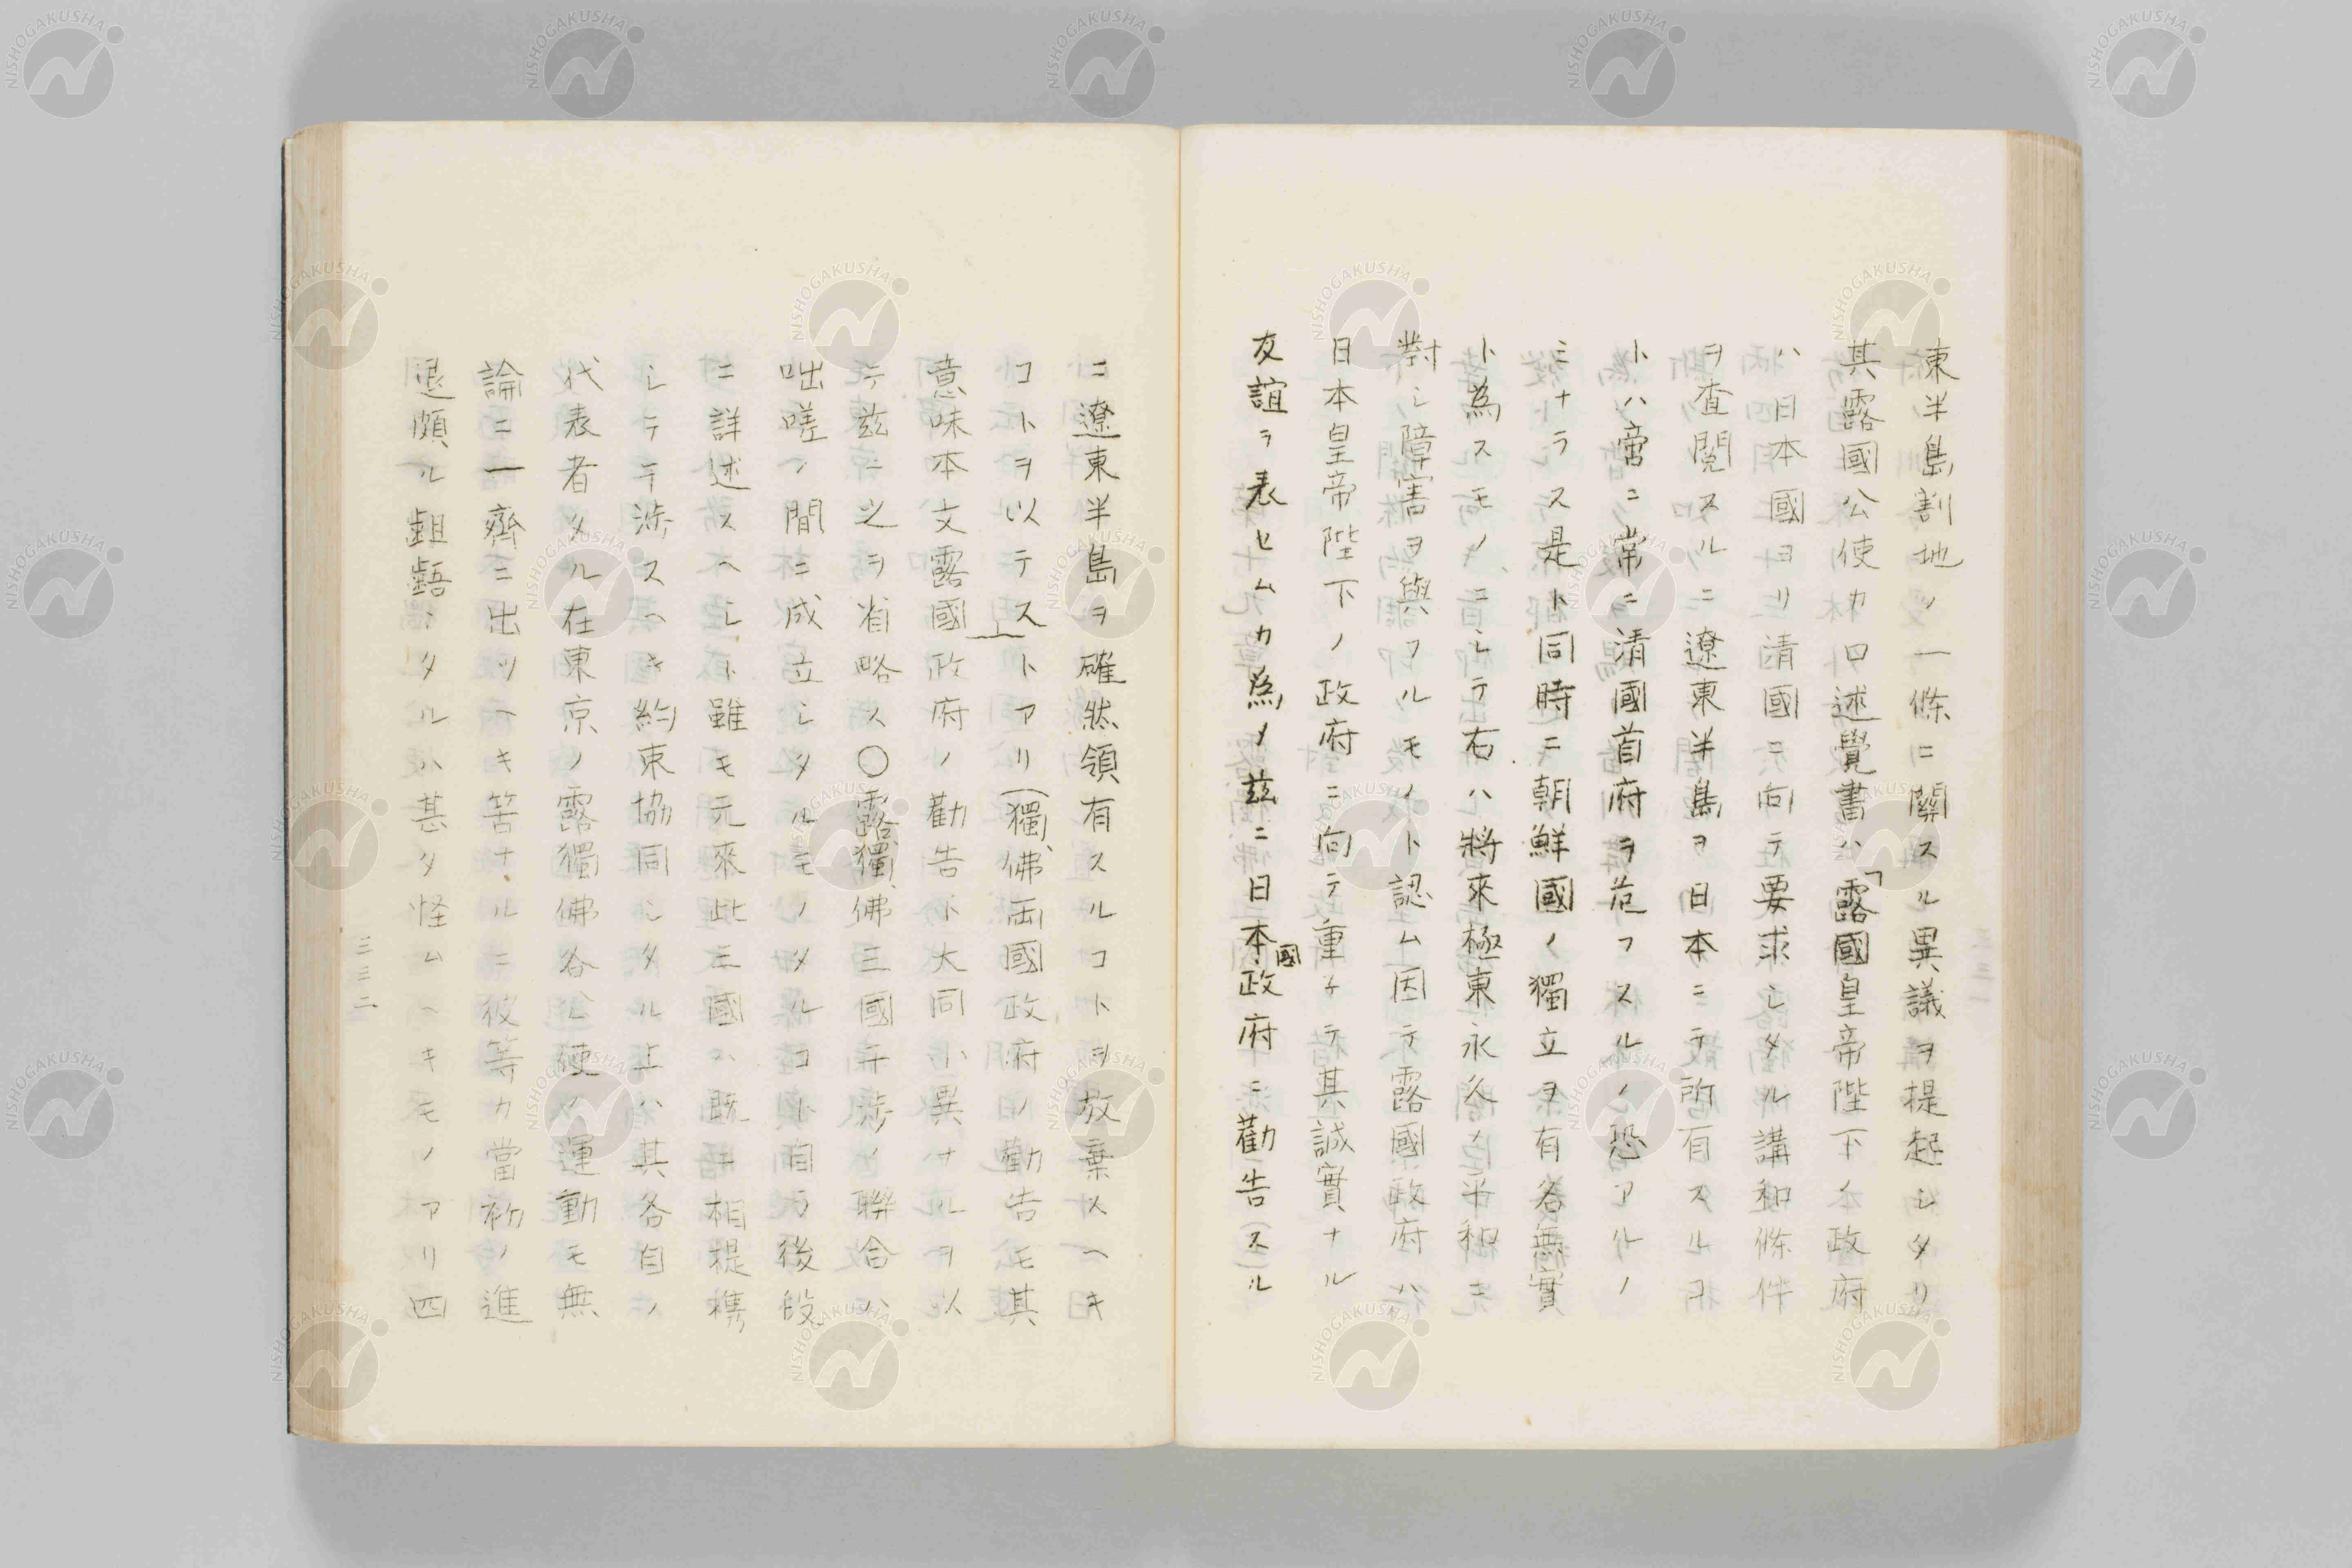 東半島割地ノ一條ニ關スル異議ヲ提起シタリ
其露國公使カ口述覺書ハ「露國皇帝陛下ノ政府
ハ日本國ヨリ清國ニ向テ要求シタル講和條件
ヲ查閱スルニ遼東半島ヲ日本ニテ所有スルヿ
トハ啻ニ常ニ清國首府ヲ危フスルノ恐アルノ
ミナラス是ト同時ニ朝鮮國ノ獨立ヲ有名無實
ト為スモノニシテ右ハ將來極東永久ノ平和ニ
對シ障害ヲ與フルモノト認ム因テ露國政府ハ
日本皇帝陛下ノ政府ニ向テ重子テ其誠實ナル
友誼ヲ表セムカ為メ茲ニ日本國政府ニ勸告(ス)ル
ニ遼東半島ヲ確然領有スルコトヲ放棄スヘキ
コトヲ以テストアリ」(獨、佛両國政府ノ勸告モ其
意味本文露國政府ノ勸告ト大同小異ナルヲ以
テ茲ニ之ヲ省略ス○露、獨、佛三國干涉ノ聯合ハ
咄嗟ノ間ニ成立シタルモノタルコト自ラ後段
ニ詳述スヘシト雖モ元來此三國ハ既ニ相提携
シテ干涉スヘキ約束協同シタル上ハ其各自ノ
代表者タル在東京ノ露獨佛各公使ノ運動モ無
論ニ一齊ニ出ツヘキ筈ナルニ彼等カ當初ノ進
退頗ル齟齬シタルハ甚タ怪ムヘキモノアリ四
三三二
NISHOGAKUSHA